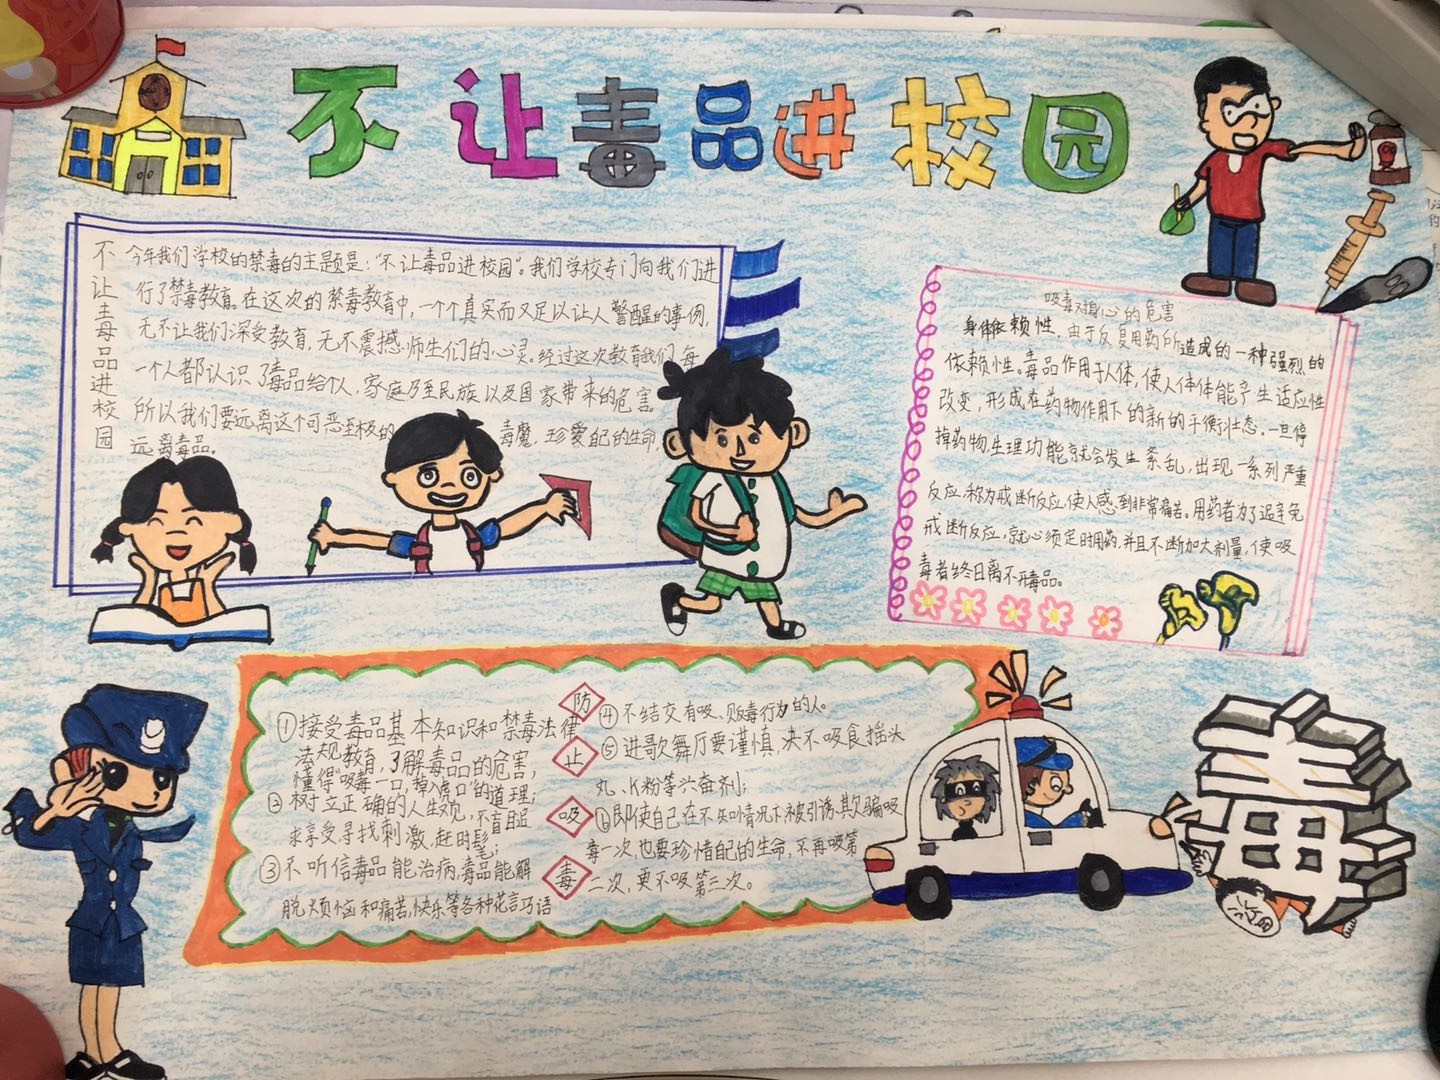 不让毒品进校园
不让毒品进校园
今年我们学校的禁毒的主题是："不让毒品进校园"。我们学校专门向我们进
行了禁毒教育。在这次的禁毒教育中，一个个真实而又足以让人警醒的事例，
无不让我们深受教育，无不震撼师生们的心灵。经过这次教育我们每
一个人都认识了毒品给个人，家庭乃至民族以及国家带来的危害。
所以我们要远离这个可恶至极的毒魔，珍爱自己的生命，
远离毒品。
吸毒对身心的危害
身体依赖性，由于反复用药所造成的一种强烈的
依赖性。毒品作用于人体，使人体体能产生适应性
改变，形成在药物作用下的新的平衡状态。一旦停
掉药物，生理功能就会发生紊乱，出现一系列严重
反应，称为戒断反应，使人感到非常痛苦。用药者为了避免
戒断反应，就必须定时用药，并且不断加大剂量，使吸
毒者终日离不开毒品。
防止吸毒
①接受毒品基本知识和禁毒法律
法规教育，了解毒品的危害，
懂得"吸毒一口，掉入虎口"的道理；
②树立正确的人生观，不盲目追
求享受，寻找刺激，赶时髦；
③不听信毒品能治病，毒品能解
脱烦恼和痛苦，快乐等各种花言巧语
④不结交有吸、贩毒行为的人。
⑤进歌舞厅要谨慎，决不吸食摇头
丸、K粉等兴奋剂；
⑥即使自己在不知情情况下被引诱、欺骗吸
毒一次，也要珍惜自己的生命，不再吸第
二次，更不吸第三次。
毒